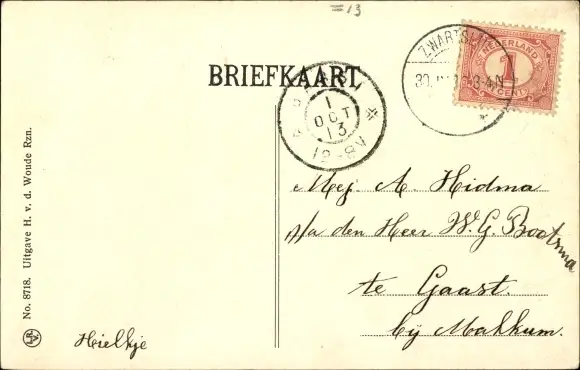 =13
BRIEFKAART
1
OCT
13
12-8V
NEDERLAND
1
CENT
Mej. A. Hidma
a/a den Heer W. G. Bootsma
te Gaast.
bij Makkum.
No. 8718. Uitgave H. v. d. Woude Rzn.
Hielkje